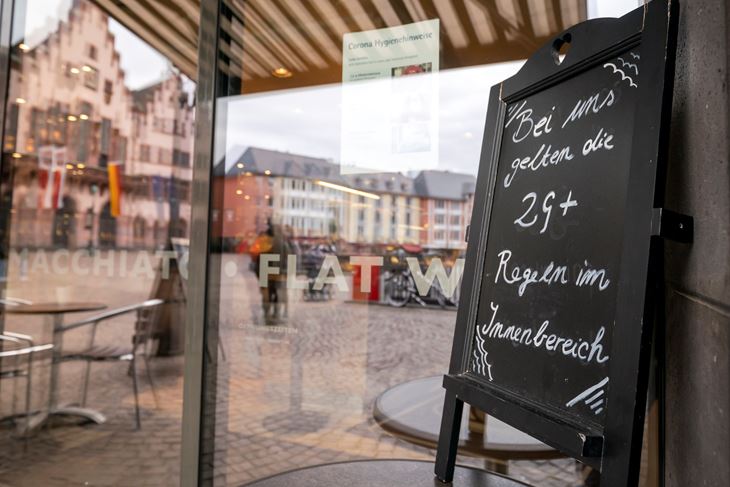 Corona Hygienehinweise
MACCHIATO • FLAT W
ÖFFNUNGSZEITEN
Bei uns
gelten die
2G+
Regeln im
Innenbereich